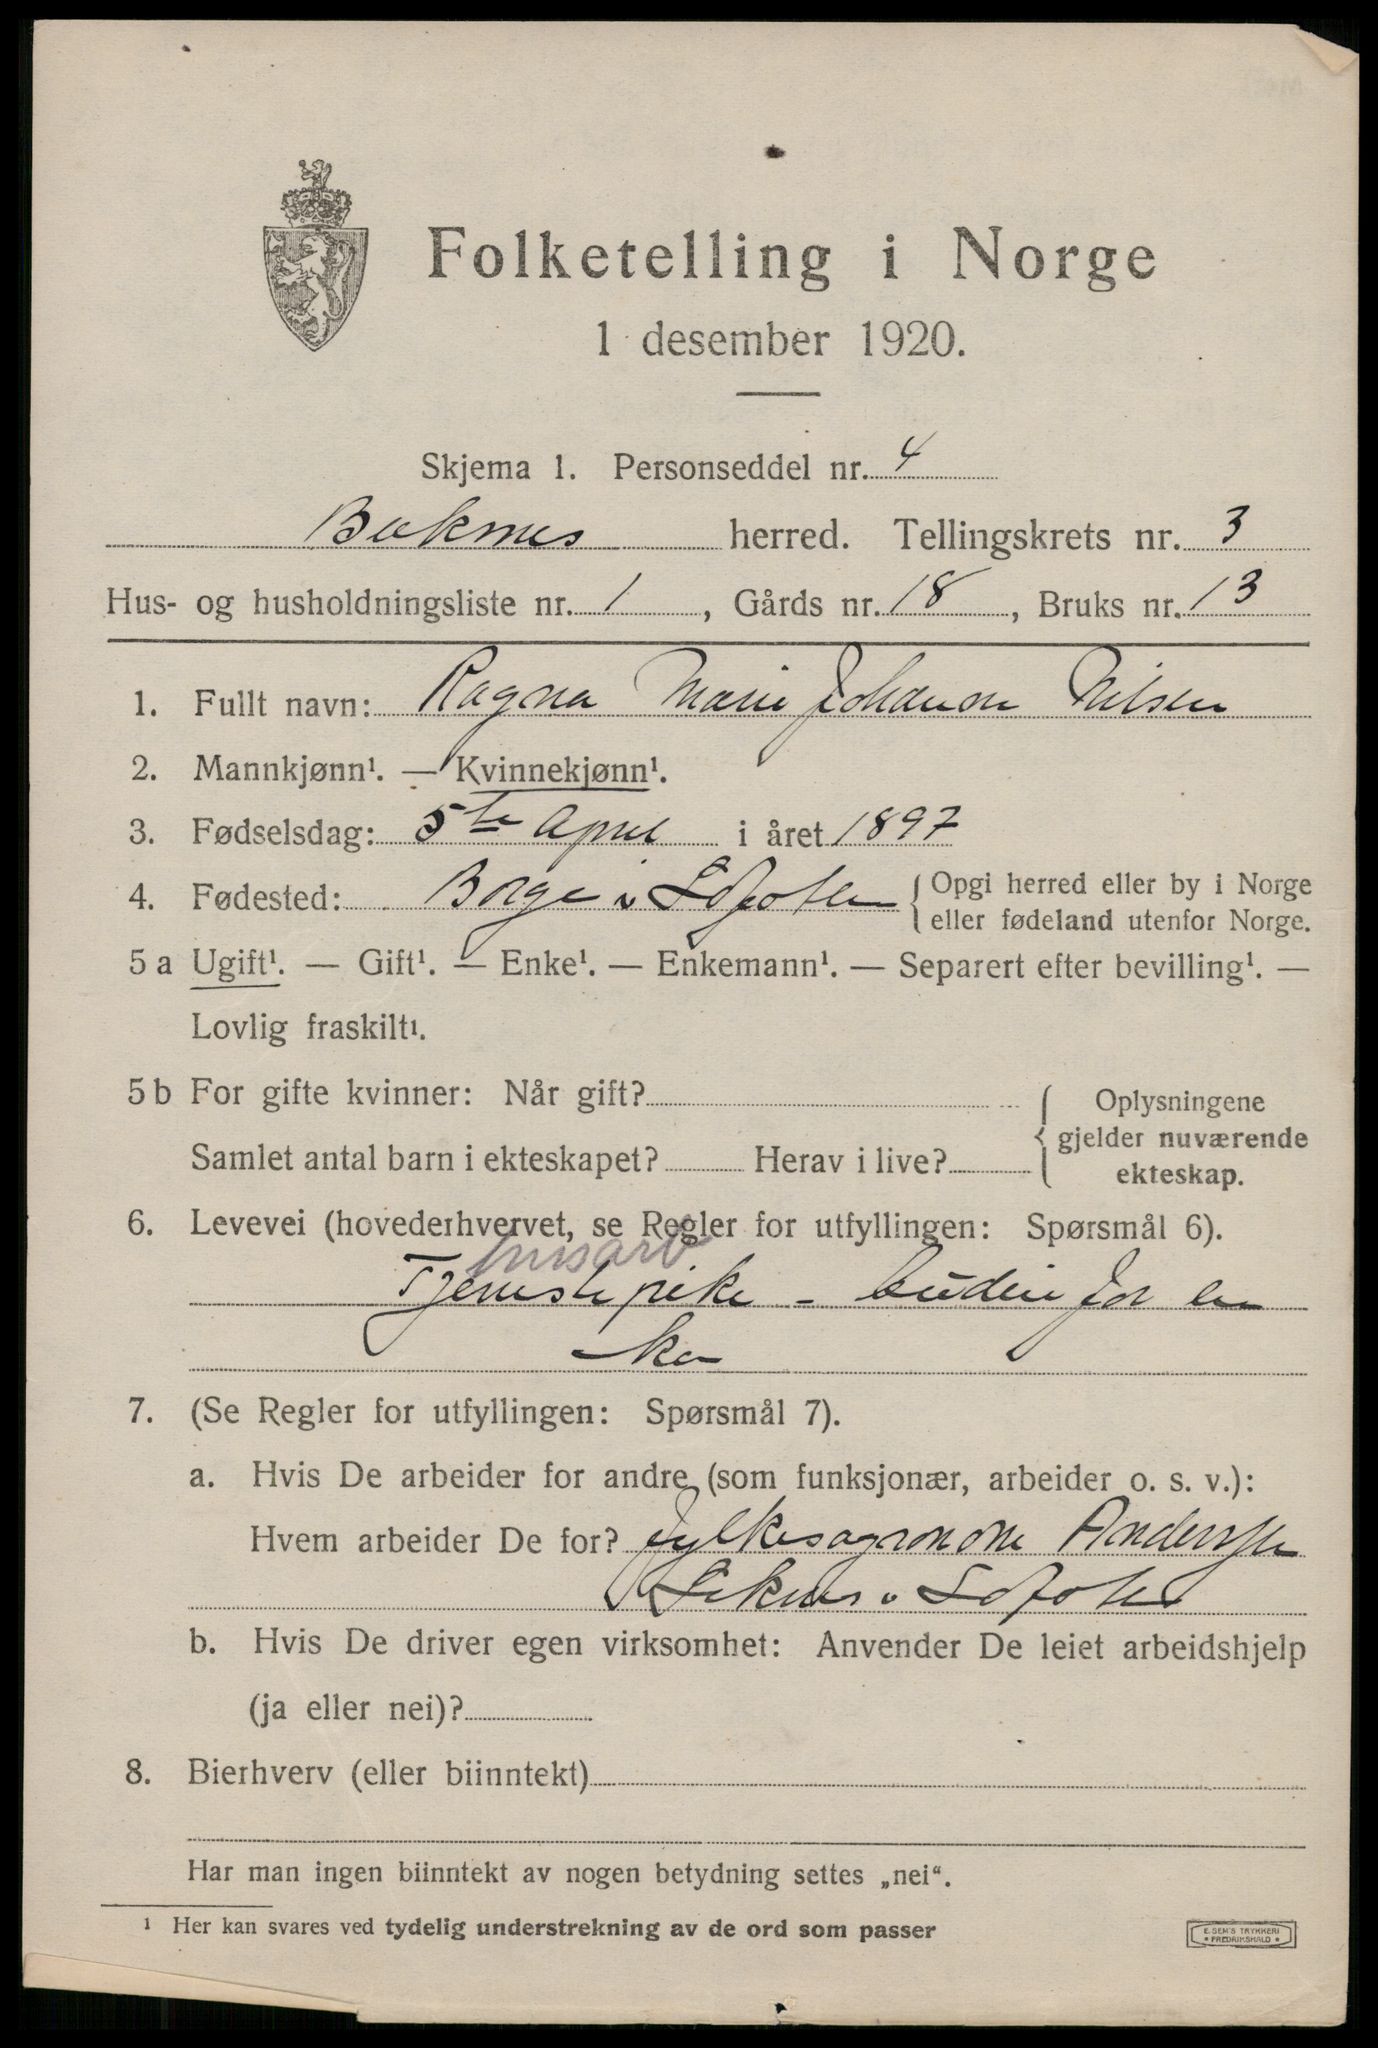 Folketelling i Norge
1 desember 1920.
Skjema 1. Personseddel nr. 4
Buksnes herred. Tellingskrets nr. 3
Hus- og husholdningsliste nr. 1, Gårds nr. 18, Bruks nr. 13
1. Fullt navn: Ragna Marie Johanne Nilsen
2. Mannkjønn¹. — Kvinnekjønn¹.
3. Fødselsdag: 5te April i året 1897
4. Fødested: Borge i Lofoten { Opgi herred eller by i Norge
eller fødeland utenfor Norge.
5 a Ugift¹. — Gift¹. — Enke¹. — Enkemann¹. — Separert efter bevilling¹. —
Lovlig fraskilt¹.
5 b For gifte kvinner: Når gift? { Oplysningene
gjelder nuværende
ekteskap.
Samlet antal barn i ekteskapet? Herav i live?
6. Levevei (hovederhvervet, se Regler for utfyllingen: Spørsmål 6).
husarb
Tjenestepike - budeie for en
ku
7. (Se Regler for utfyllingen: Spørsmål 7).
a. Hvis De arbeider for andre (som funksjonær, arbeider o. s. v.):
Hvem arbeider De for? fylkesagronom Anderssen
i Lofoten
b. Hvis De driver egen virksomhet: Anvender De leiet arbeidshjelp
(ja eller nei)?
8. Bierhverv (eller biinntekt)
Har man ingen biinntekt av nogen betydning settes „nei“.
¹ Her kan svares ved tydelig understrekning av de ord som passer
E. SEM'S TRYKKERI
* FREDRIKSHALD *